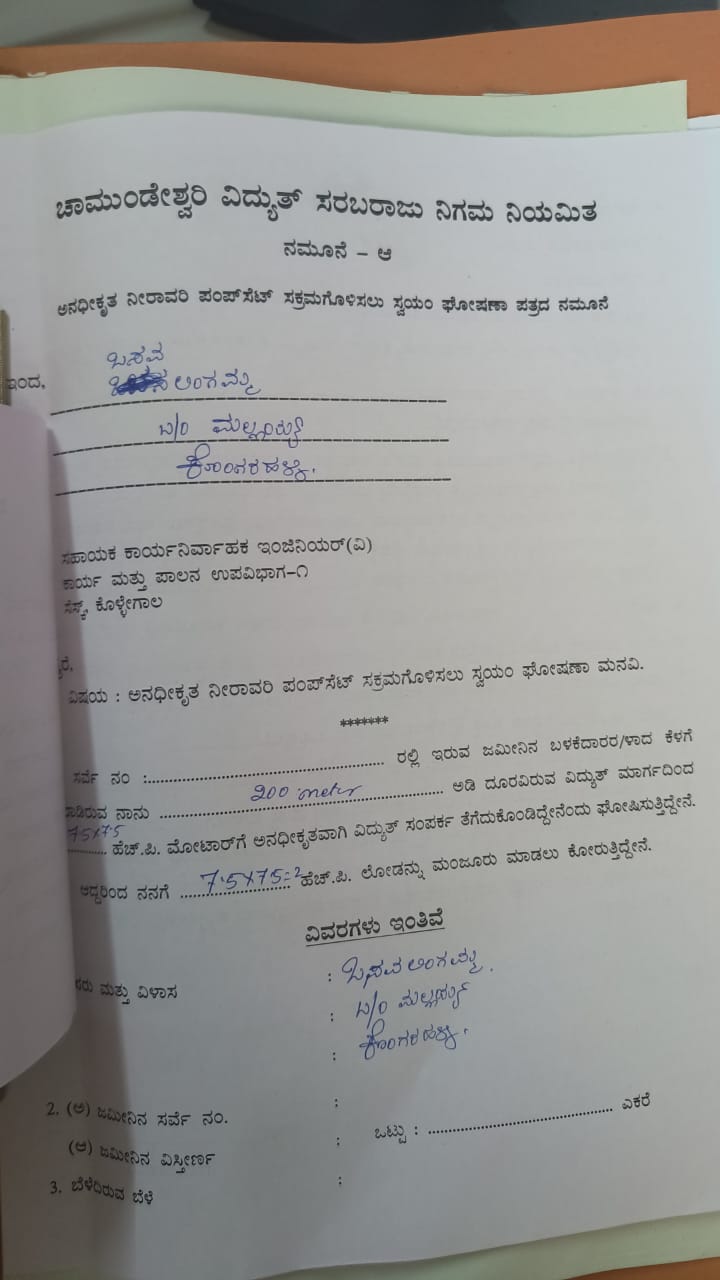 ಚಾಮುಂಡೇಶ್ವರಿ ವಿದ್ಯುತ್ ಸರಬರಾಜು ನಿಗಮ ನಿಯಮಿತ
ನಮೂನೆ – ಆ
ಅನಧೀಕೃತ ನೀರಾವರಿ ಪಂಪ್‌ಸೆಟ್ ಸಕ್ರಮಗೊಳಿಸಲು ಸ್ವಯಂ ಘೋಷಣಾ ಪತ್ರದ ನಮೂನೆ
ಬಸವ
ಇಂದ, ಲಿಂಗಮ್ಮ
ಕೊಂಗರಹಳ್ಳಿ.
ಸಹಾಯಕ ಕಾರ್ಯನಿರ್ವಾಹಕ ಇಂಜಿನಿಯರ್(ವಿ)
ಕಾರ್ಯ ಮತ್ತು ಪಾಲನ ಉಪವಿಭಾಗ–೧
ಸೆಸ್ಕ್, ಕೊಳ್ಳೇಗಾಲ
ವಿಷಯ : ಅನಧೀಕೃತ ನೀರಾವರಿ ಪಂಪ್‌ಸೆಟ್ ಸಕ್ರಮಗೊಳಿಸಲು ಸ್ವಯಂ ಘೋಷಣಾ ಮನವಿ.
*******
ಸರ್ವೆ ನಂ :.......... ರಲ್ಲಿ ಇರುವ ಜಮೀನಿನ ಬಳಕೆದಾರರ/ಳಾದ ಕೆಳಗೆ
ನಾನು 200 meter ಅಡಿ ದೂರವಿರುವ ವಿದ್ಯುತ್ ಮಾರ್ಗದಿಂದ
7.5x7.5 ಹೆಚ್.ಪಿ. ಮೋಟಾರ್‌ಗೆ ಅನಧೀಕೃತವಾಗಿ ವಿದ್ಯುತ್ ಸಂಪರ್ಕ ತೆಗೆದುಕೊಂಡಿದ್ದೇನೆಂದು ಘೋಷಿಸುತ್ತಿದ್ದೇನೆ.
ಆದ್ದರಿಂದ ನನಗೆ 7.5x7.5=2 ಹೆಚ್.ಪಿ. ಲೋಡನ್ನು ಮಂಜೂರು ಮಾಡಲು ಕೋರುತ್ತಿದ್ದೇನೆ.
ವಿವರಗಳು ಇಂತಿವೆ
ಮತ್ತು ವಿಳಾಸ : ಬಸವಲಿಂಗಮ್ಮ.
:
: ಕೊಂಗರಹಳ್ಳಿ.
2. (ಅ) ಜಮೀನಿನ ಸರ್ವೆ ನಂ. :
(ಆ) ಜಮೀನಿನ ವಿಸ್ತೀರ್ಣ : ಒಟ್ಟು : .......... ಎಕರೆ
3. ಬೆಳೆದಿರುವ ಬೆಳೆ :